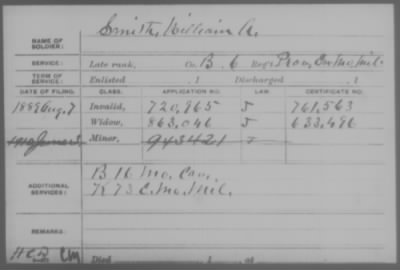 Smith, William A.
NAME OF SOLDIER:
SERVICE: Late rank, Co. B. 6 Reg't Prov. En. Mo. Mil.
TERM OF SERVICE: Enlisted , 1 Discharged , 1
DATE OF FILING. CLASS. APPLICATION NO. LAW. CERTIFICATE NO.
1889 Aug. 7 Invalid, 720,965 J 761,563
Widow, 863,046 J 633,496
Minor, 943421 J
ADDITIONAL SERVICES: B 16 Mo. Cav.
K 73 E. Mo. Mil.
REMARKS:
Died , 1 , at